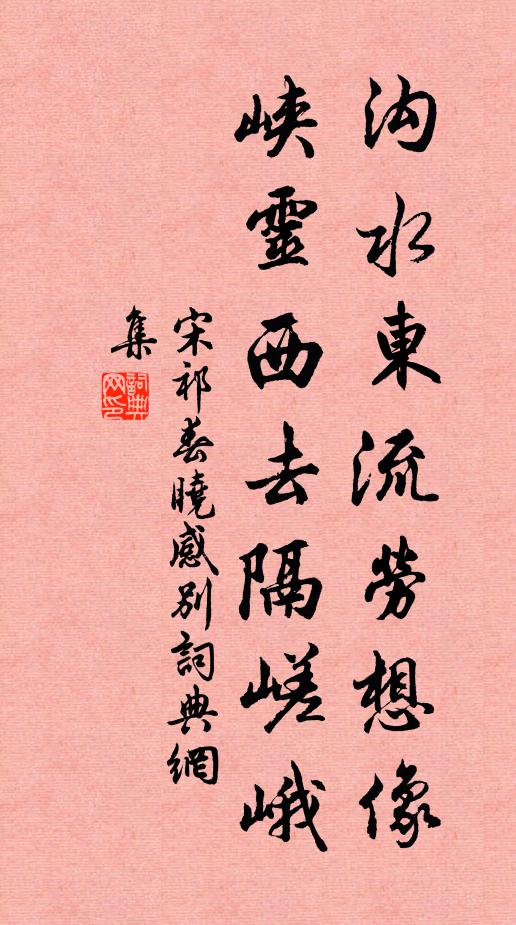 沟水東流勞想像
峽靈西去隔嵯峨
宋祁春曉感别詞典網
集
詞典網印